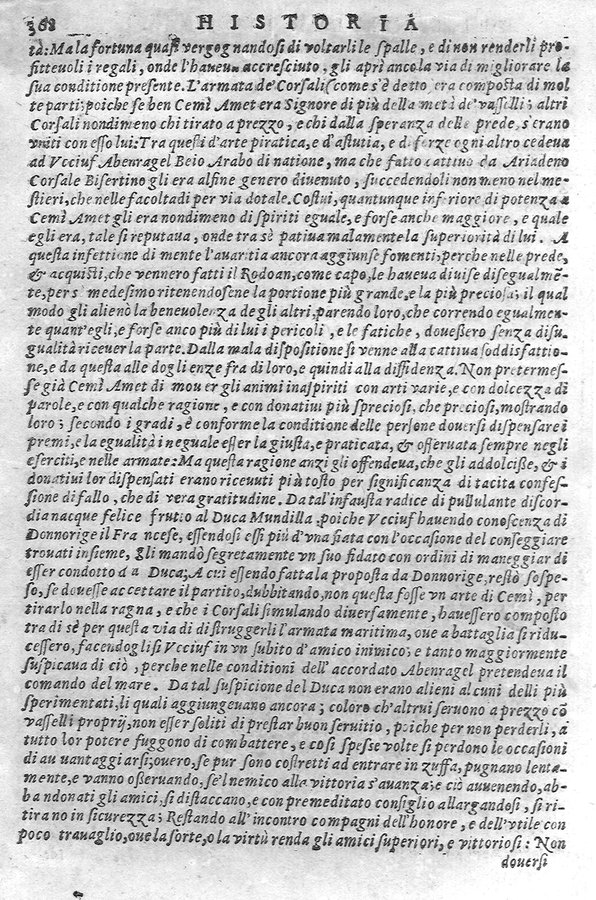 368 HISTORIA
tà: Ma la fortuna quasi vergognandosi di voltarli le spalle, e di non renderli pro-
fitteuoli i regali, onde l'haueua accresciuto, gli aprì ancola via di migliorare la
sua conditione presente. L'armata de' Corsali (come s'è detto) era composta di mol
te parti; poiche se ben Cemì Amet era Signore di più della metà de' vasselli; altri
Corsali nondimeno chi tirato a prezzo, e chi dalla speranza delle prede, s'erano
vniti con esso lui: Tra questi d'arte piratica, e d'astutia, e di forze ogni altro cedeua
ad Vcciuf Abenragel Beio Arabo di natione, ma che fatto cattiuo da Ariadeno
Corsale Bisertino gli era alfine genero diuenuto, succedendoli non meno nel me-
stieri, che nelle facoltà di per via dotale. Costui, quantunque inferiore di potenza a
Cemì Amet gli era nondimeno di spiriti eguale, e forse anche maggiore, e quale
egli era, tale si reputaua, onde tra sè patiua malamente la superiorità di lui. A
questa infettione di mente l'auaritia ancora aggiunse fomenti; perche nelle prede,
& acquisti, che vennero fatti il Rodoan, come capo, le haueua diuise disegualmē-
te, per s medesimo ritenendosene la portione più grande, e la più preciosa; il qual
modo gli alienò la beneuolenza degli altri, parendo loro, che correndo egualmen-
te quant'egli, e forse anco più di lui i pericoli, e le fatiche, doueßero senza disu-
gualità riceuer la parte. Dalla mala dispositione si venne alla cattiua soddisfattio-
ne, e da questa alle doglienze fra di loro, e quindi alla diffidenza. Non pretermes-
se già Cemì Amet di mouer gli animi inaspriti con arti varie, e con dolcezza di
parole, e con qualche ragione, e con donatiui più spreciosi, che preciosi, mostrando
loro; secondo i gradi, e conforme la conditione delle persone douersi dispensare i
premi, e la egualità ineguale esser la giusta, e praticata, & osseruata sempre negli
eserciti, e nelle armate: Ma questa ragione anzi gli offendeua, che gli addolciße, & i
donatiui lor dispensati erano riceuuti più tosto per significanza di tacita confes-
sione di fallo, che di vera gratitudine. Da tal'infausta radice di pullulante discor-
dia nacque felice frutto al Duca Mundilla; poiche Vcciuf hauendo conoscenza di
Donnorige il Francese, essendosi essi più d'vna fiata con l'occasione del conseggiare
trouati insieme, gli mandò segretamente vn suo fidato con ordini di maneggiar di
esser condotto da Duca; A cui essendo fatta la proposta da Donnorige, restò sospe-
so, se douesse accettare il partito, dubbitando, non questa fosse vn arte di Cemì, per
tirarlo nella ragna, e che i Corsali simulando diuersamente, hauessero composto
tra di sè per questa via di distruggerli l'armata maritima, oue a battaglia si ridu-
cessero, facendoglisi Vcciuf in vn subito d'amico inimico; e tanto maggiormente
suspicaua di ciò, perche nelle conditioni dell'accordato Abenragel pretendeua il
comando del mare. Da tal suspicione del Duca non erano alieni alcuni delli più
sperimentati, li quali aggiungeuano ancora; coloro ch'altrui seruono a prezzo cō
vasselli proprij, non esser soliti di prestar buon seruitio, poiche per non perderli, a
tutto lor potere fuggono di combattere, e così spesse volte si perdono le occasioni
di auuantaggiarsi; ouero, se pur sono costretti ad entrare in zuffa, pugnano lenta-
mente, e vanno oßeruando, se'l nemico alla vittoria s'auanza; e ciò auuenendo, ab-
bandonati gli amici, si distaccano, e con premeditato consiglio allargandosi, si ri-
tirano in sicurezza; Restando all'incontro compagni dell'honore, e dell'vtile con
poco trauaglio, oue la sorte, o la virtù renda gli amici superiori, e vittoriosi: Non
douersi